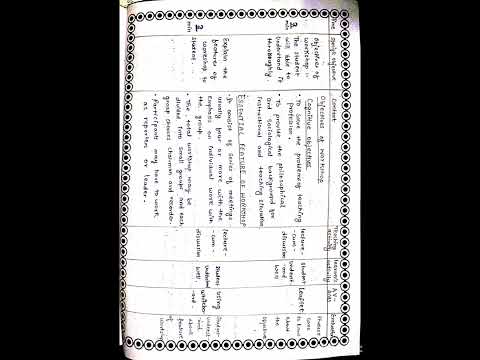 Time
Specific objective
Content
Teaching activity
learners activity
A.V-aids
Evaluation
3 min
objective of workshop :-
The student will able to understand it throughly.
Objectives of workshop
Cognitive objective
• To solve the problem of teaching profession.
• To provide the philosophical and sociological background for instructional and teaching situation
lecture -
-cum-
discussion
student
and
Leaflet
the
objective
3 min
Explain the features of workshop to student
ESSENTIAL FEATURE OF WORKSHOP
• It consist of series of meetings usually four or more with the Emphasis on individual work with in the group.
• The total workshop may be divided into small groups and each group chooses chairman and recorder.
• Participant may have to work as reporter or leader.
lecture -
-cum-
discussion
student
understand
well
using
about
feature
of
workshop